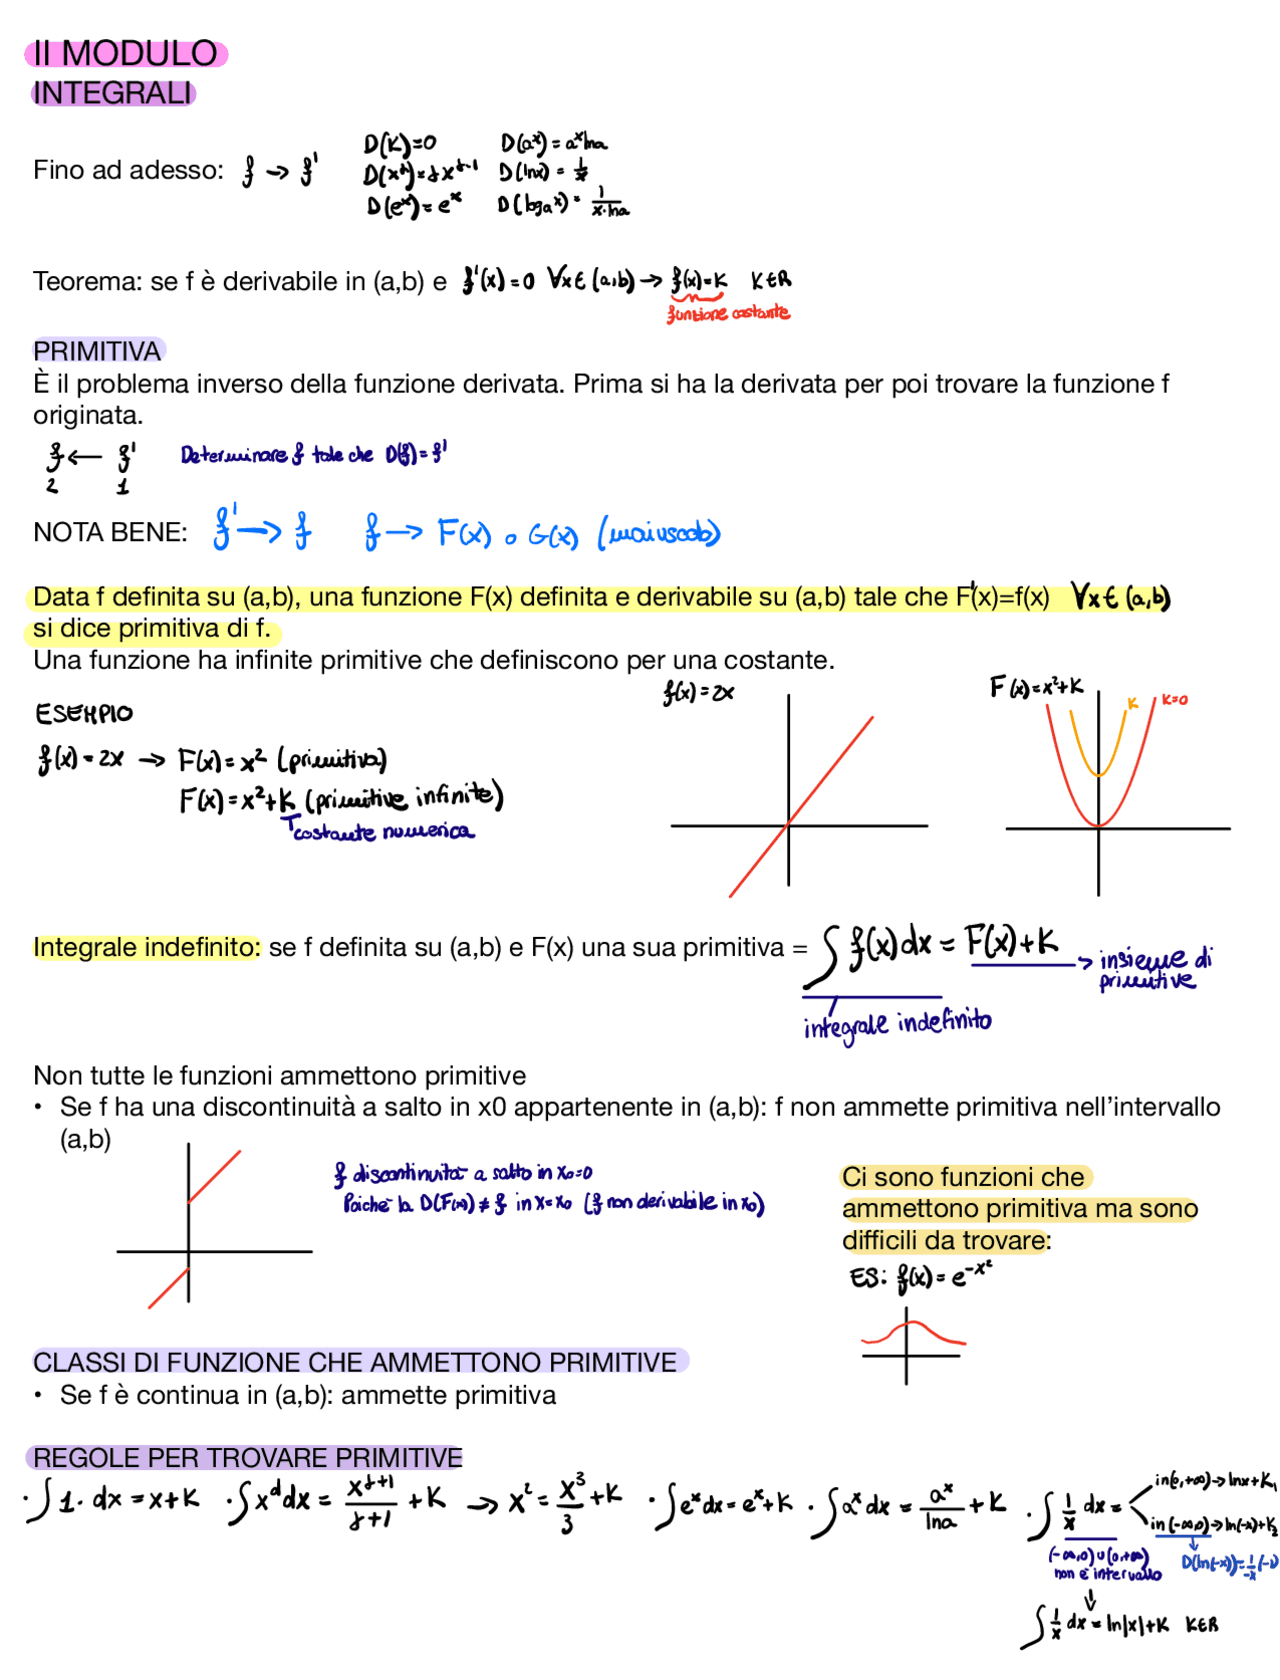 II MODULO
INTEGRALI
D(K)=0 D(aˣ)=aˣlna
Fino ad adesso: f → f' D(x^α)=αx^(α-1) D(lnx)=1/x
D(eˣ)=eˣ D(logₐx)=1/(x·lna)
Teorema: se f è derivabile in (a,b) e f'(x)=0 ∀x∈(a,b)→ f(x)=K K∈R
funzione costante
PRIMITIVA
È il problema inverso della funzione derivata. Prima si ha la derivata per poi trovare la funzione f
originata.
f ← f' Determinare f tale che D(f)=f'
2 1
NOTA BENE: f' → f f → F(x) o G(x) (maiuscolo)
Data f definita su (a,b), una funzione F(x) definita e derivabile su (a,b) tale che F'(x)=f(x) ∀x∈(a,b)
si dice primitiva di f.
Una funzione ha infinite primitive che definiscono per una costante.
f(x)=2x F(x)=x²+K K K=0
ESEMPIO
f(x)=2x → F(x)=x² (primitiva)
F(x)=x²+K (primitive infinite)
costante numerica
Integrale indefinito: se f definita su (a,b) e F(x) una sua primitiva = ∫f(x)dx = F(x)+K → insieme di
primitive
integrale indefinito
Non tutte le funzioni ammettono primitive
• Se f ha una discontinuità a salto in x0 appartenente in (a,b): f non ammette primitiva nell'intervallo
(a,b)
f discontinuità a salto in x₀=0
Poiché la D(F(x)) ≠ f in x=x₀ (f non derivabile in x₀)
Ci sono funzioni che
ammettono primitiva ma sono
difficili da trovare:
ES: f(x)=e^(-x²)
CLASSI DI FUNZIONE CHE AMMETTONO PRIMITIVE
• Se f è continua in (a,b): ammette primitiva
REGOLE PER TROVARE PRIMITIVE
·∫1·dx=x+K ·∫x^αdx=x^(α+1)/(α+1)+K → x²=x³/3+K ·∫eˣdx=eˣ+K ·∫aˣdx=aˣ/lna+K ·∫1/x dx= in(0,+∞)→lnx+K₁
in(-∞,0)→ln(-x)+K₂
(-∞,0)∪(0,+∞) D(ln(-x))=1/-x(-1)
non è intervallo
∫1/x dx=ln|x|+K K∈R